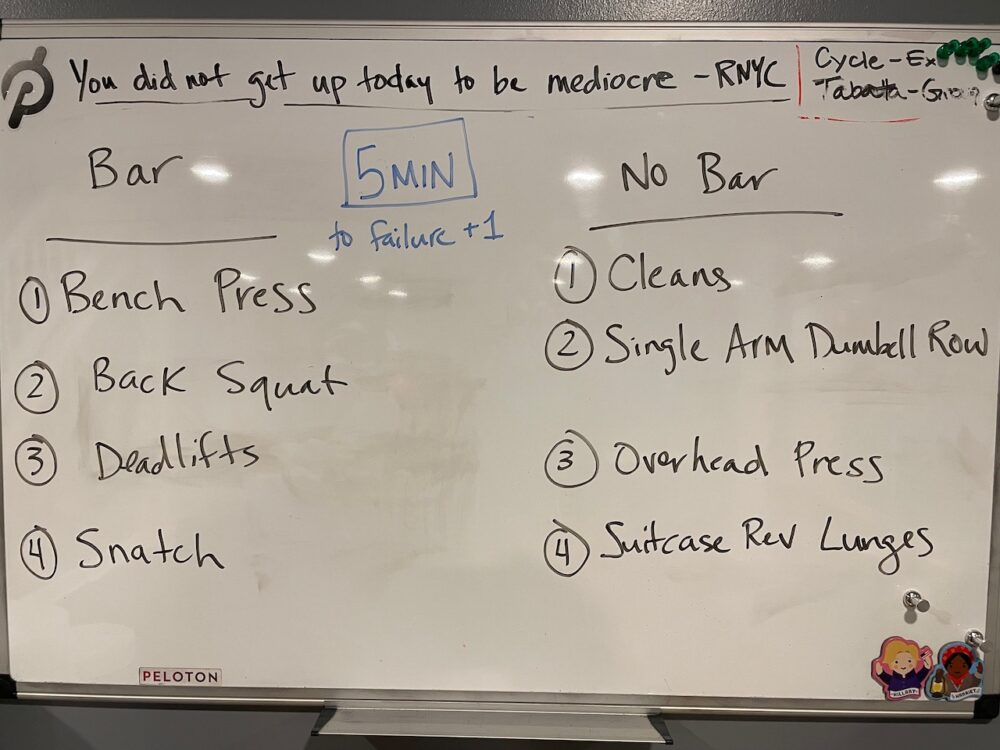 You did not get up today to be mediocre - RNYC
Cycle - Ex
Tabatta -
Bar
5 MIN
to failure + 1
No Bar
① Bench Press
② Back Squat
③ Deadlifts
④ Snatch
① Cleans
② Single Arm Dumbell Row
③ Overhead Press
④ Suitcase Rev Lunges
PELOTON
HILLARY
HARRIET